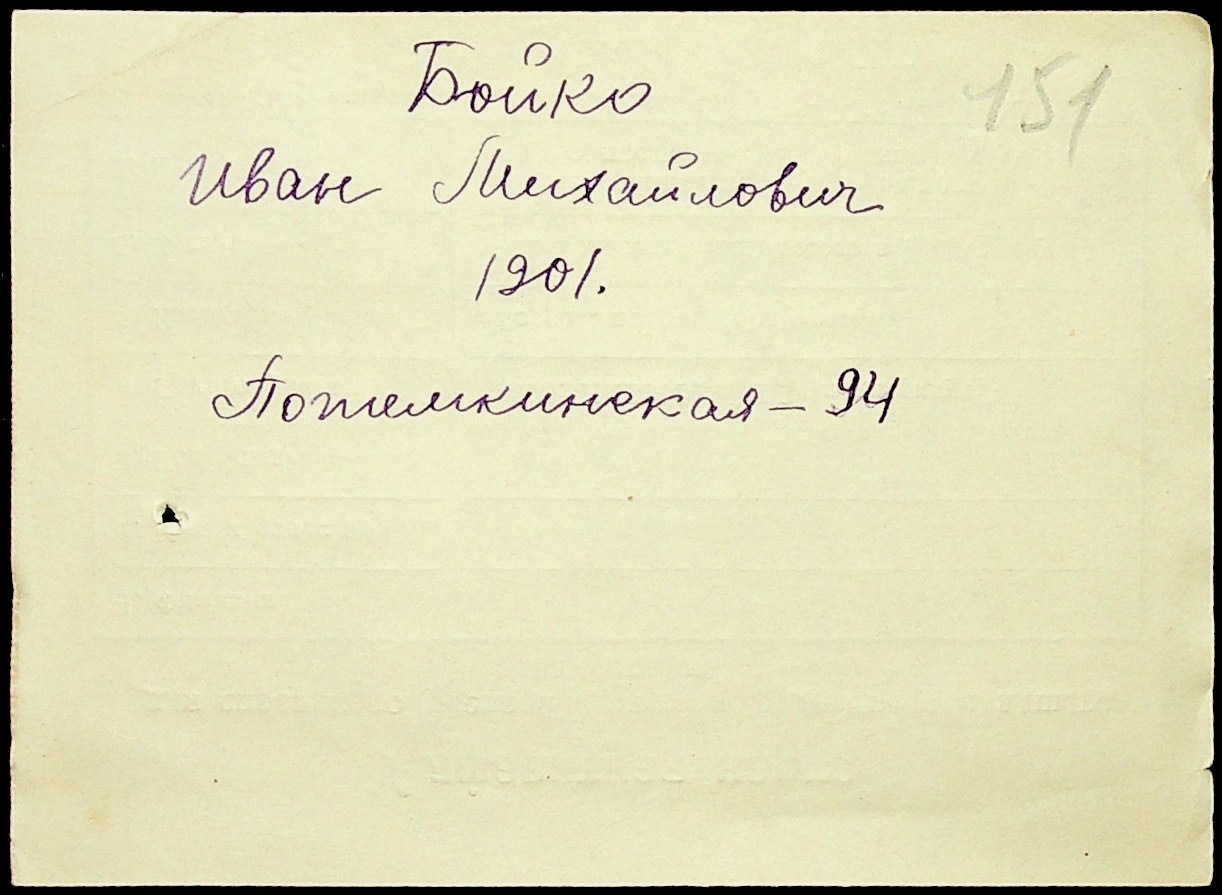 Бойко
151
Иван Михайлович
1901.
Потемкинская – 94